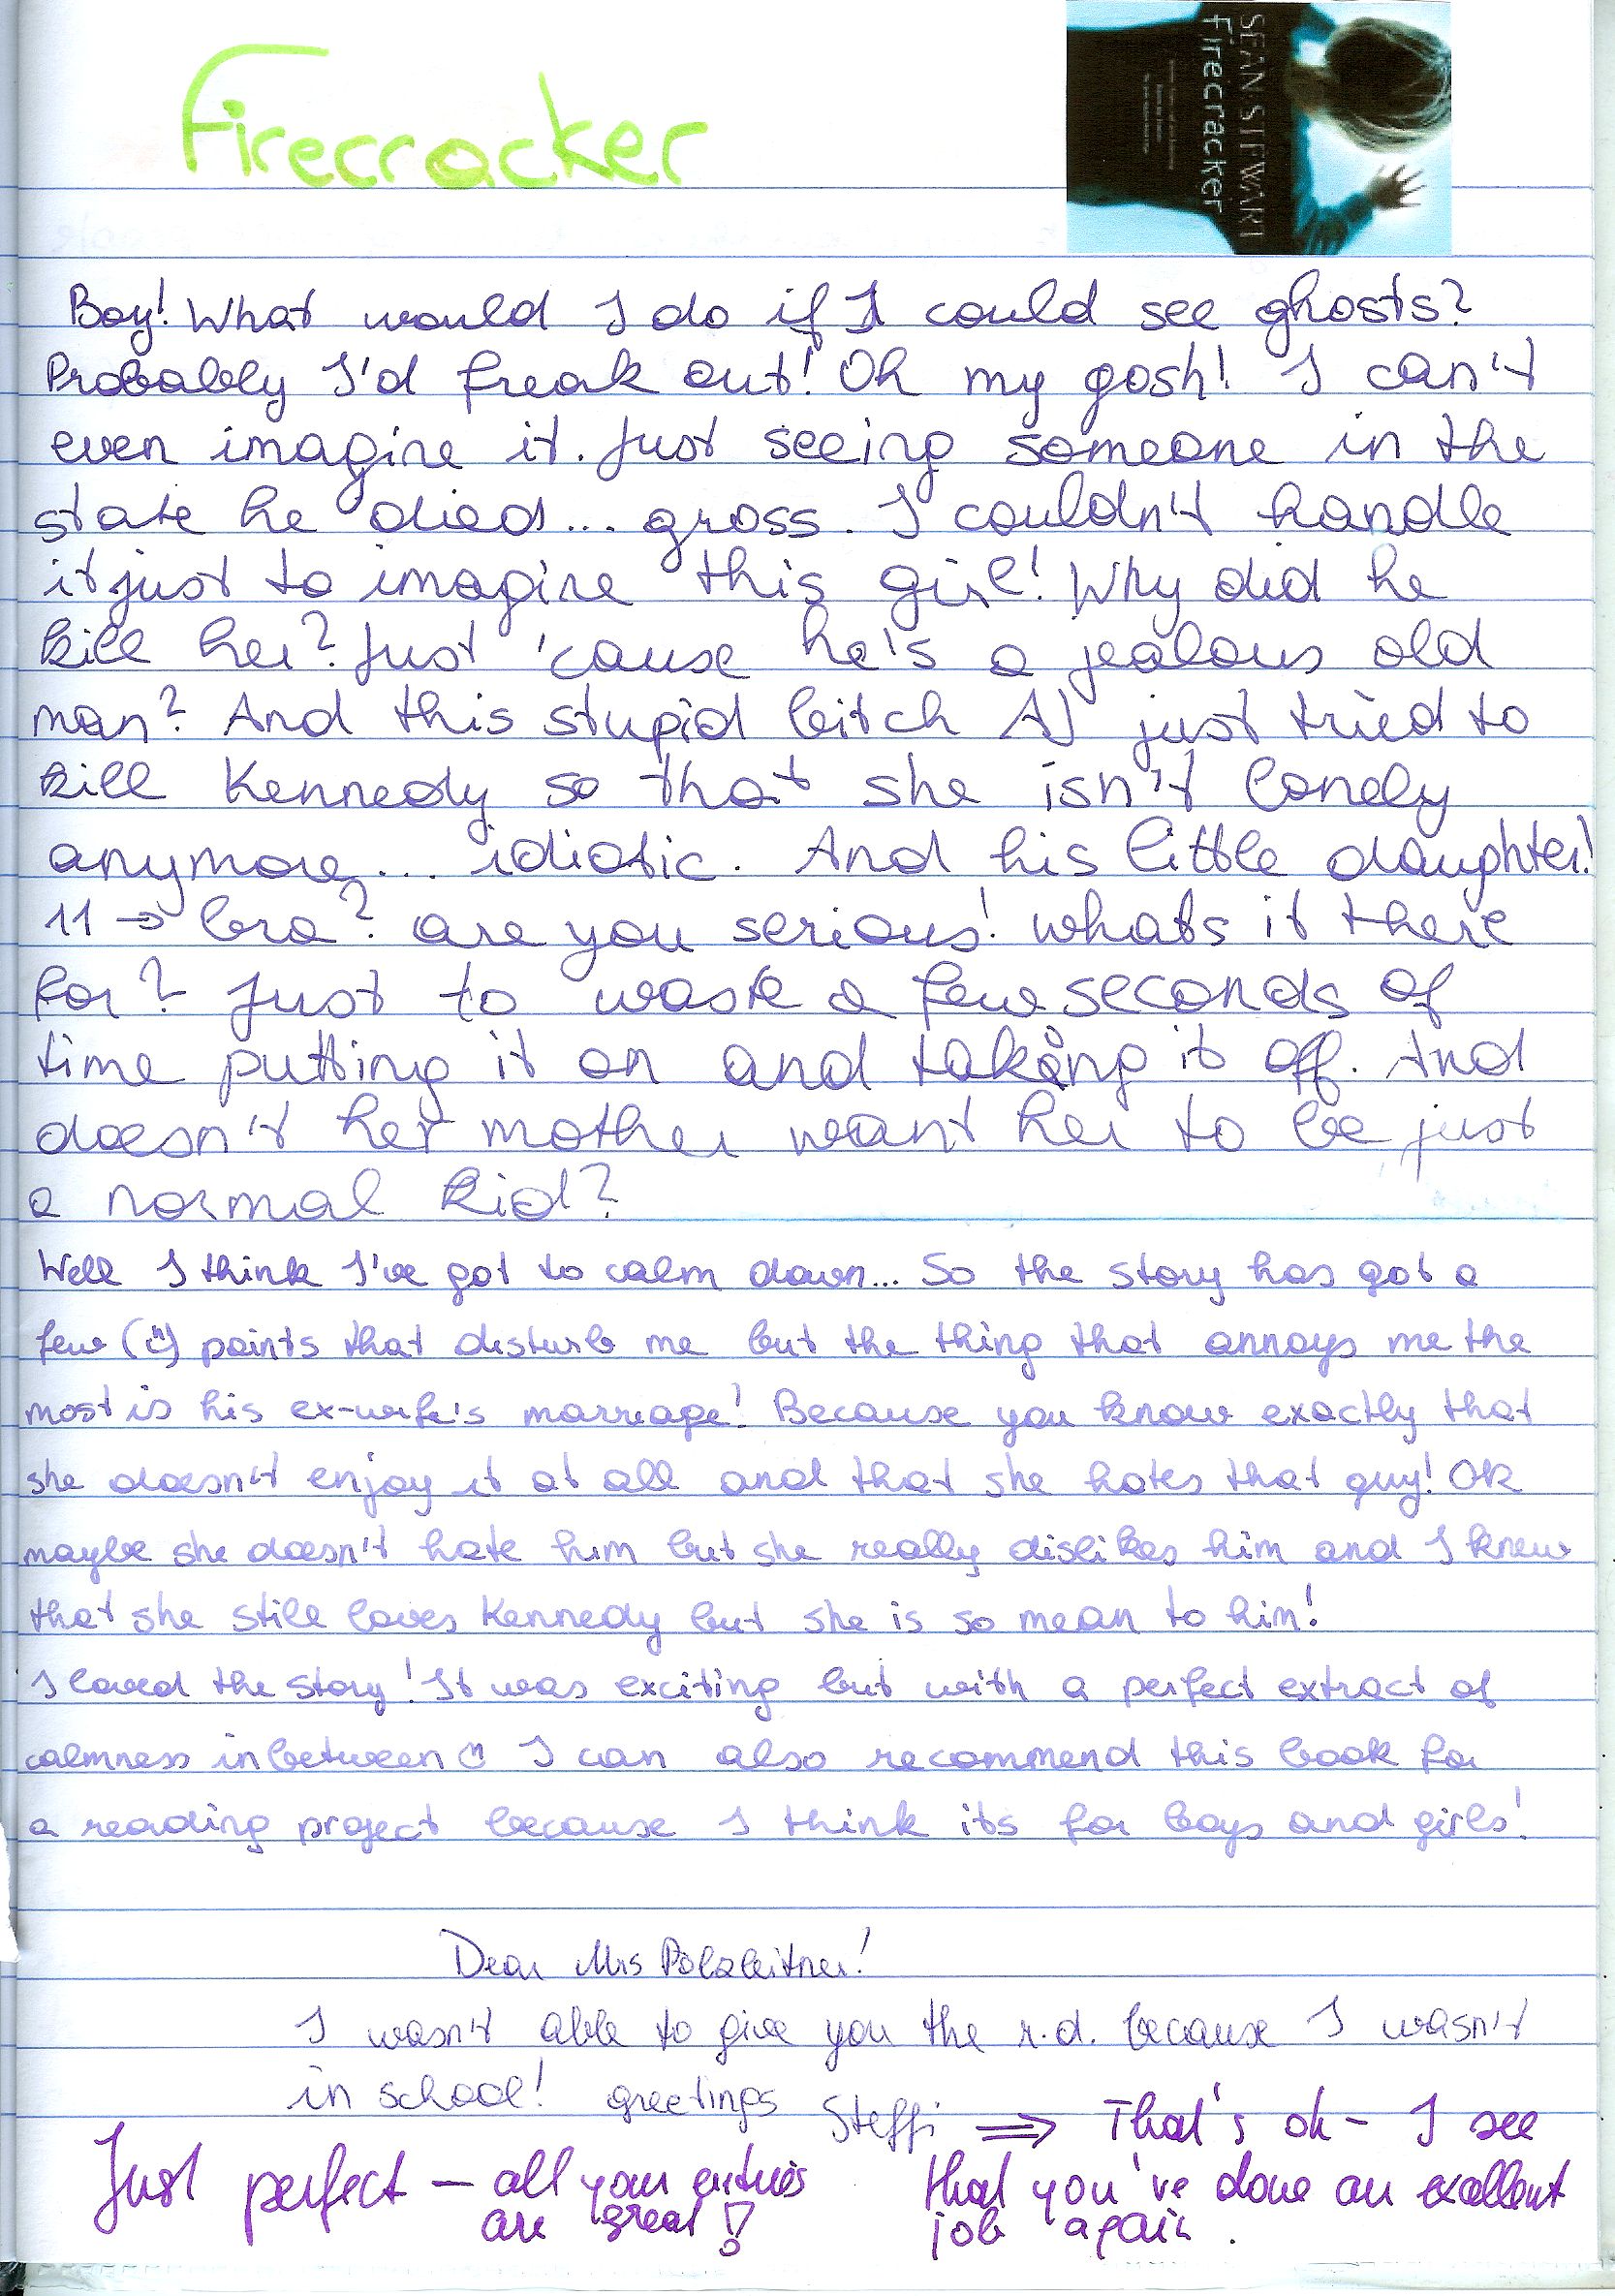 Firecracker
SEAN STEWART
Firecracker
Boy! What would I do if I could see ghosts?
Probably I'd freak out! Oh my gosh! I can't
even imagine it. Just seeing someone in the
state he died... gross. I couldn't handle
it just to imagine this girl! Why did he
kill her? Just 'cause he's a jealous old
man? And this stupid bitch AJ just tried to
kill Kennedy so that she isn't lonely
anymore... idiotic. And his little daughter!
11 → bra? are you serious! whats it there
for? Just to waste a few seconds of
time putting it on and taking it off. And
doesn't her mother want her to be just
a normal kid?
Well I think I've got to calm down... So the story has got a
few (ü) points that disturb me but the thing that annoys me the
most is his ex-wife's marriage! Because you know exactly that
she doesn't enjoy it at all and that she hates that guy! Ok
maybe she doesn't hate him but she really dislikes him and I knew
that she still loves Kennedy but she is so mean to him!
I loved the story! It was exciting but with a perfect extract of
calmness inbetween ü I can also recommend this book for
a reading project because I think its for boys and girls!
Dear Mrs Pölzleitner!
I wasn't able to give you the r.d. because I wasn't
in school! greetings Steffi
⇒ That's ok - I see
that you've done an excellent
job again.
Just perfect - all your entries
are great!